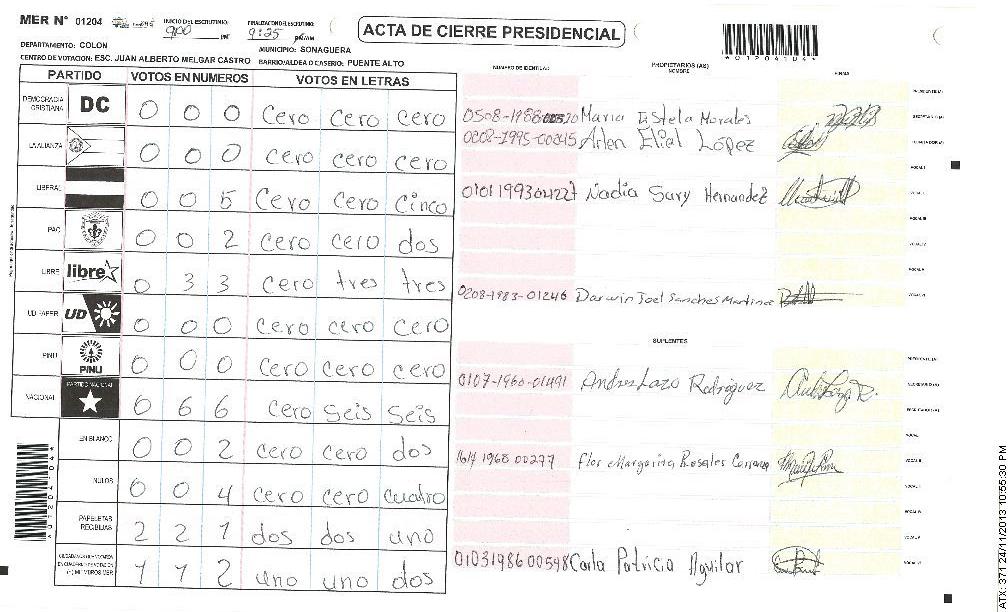 MER N° 01204 INICIO DEL ESCRUTINIO: 9:00 PM FINALIZACION DEL ESCRUTINIO: 9:25 PM ACTA DE CIERRE PRESIDENCIAL
*01204104*
DEPARTAMENTO: COLON MUNICIPIO: SONAGUERA
CENTRO DE VOTACION: ESC. JUAN ALBERTO MELGAR CASTRO BARRIO/ALDEA O CASERIO: PUENTE ALTO
PARTIDO VOTOS EN NUMEROS VOTOS EN LETRAS
DEMOCRACIA CRISTIANA DC 0 0 0 Cero Cero Cero
LA ALIANZA 0 0 0 Cero Cero Cero
LIBERAL 0 0 5 Cero Cero Cinco
PAC 0 0 2 Cero Cero dos
LIBRE libre 0 3 3 Cero tres tres
UD FAPER UD 0 0 0 Cero Cero Cero
PINU PINU 0 0 0 Cero Cero Cero
NACIONAL PARTIDO NACIONAL 0 6 6 Cero Seis Seis
EN BLANCO 0 0 2 Cero Cero dos
NULOS 0 0 4 Cero Cero Cuatro
PAPELETAS RECIBIDAS 2 2 1 dos dos uno
1 1 2 uno uno dos
NUMERO DE IDENTIDAD PROPIETARIOS (AS) NOMBRE FIRMA
Maria Estela Morales
0202-1995-00045 Arlen Eliel López
0101199304227 Nadia Sary Hernandez
0208-1983-01246 Darwin Joel Sanches Martinez
SUPLENTES
0107-1960-01491 Andres Lazo Rodriguez
1614 1968 00277 Flor Margarina Rosales
0103198600598 Carla Patricia Aguilar
ATX: 371 24/11/2013 10:55:30 PM